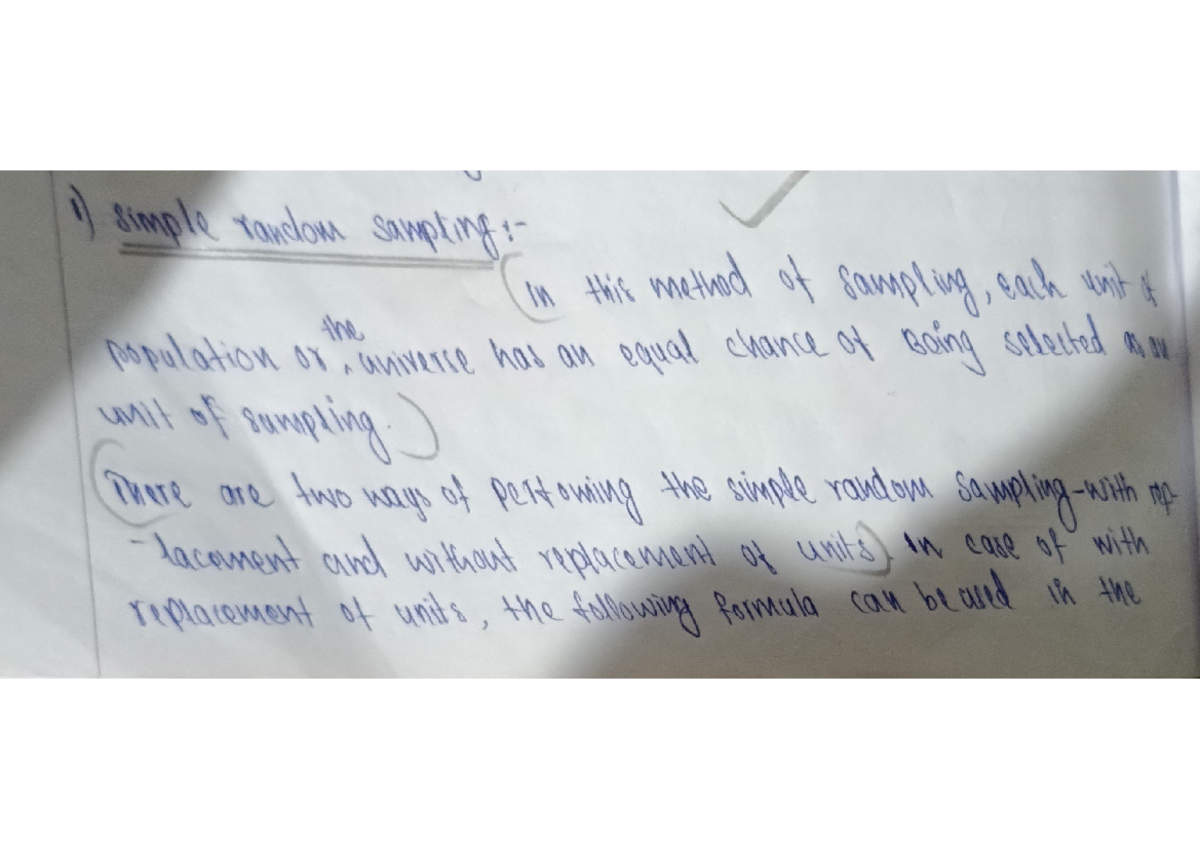 1) simple random sampling :-
In this method of sampling, each unit of
population or the universe has an equal chance of Boing selected as an
unit of sampling.
There are two ways of pertowing the simple random sampling-with rep-
-lacement and without replacement of units. In case of with
replacement of units, the following formula can be used in the